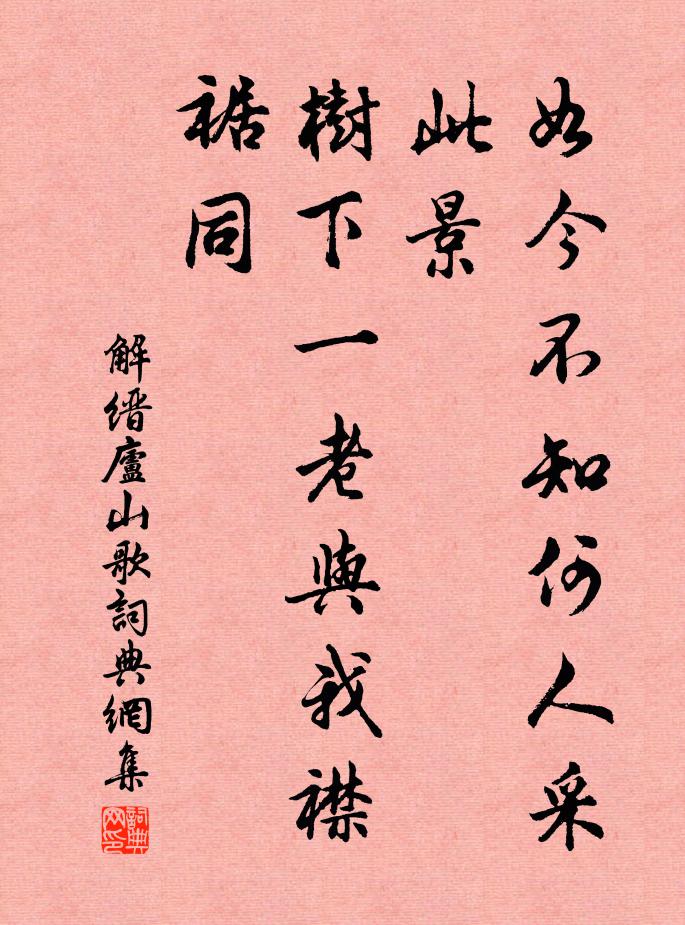 如今不知何人采
此景
樹下一老與我襟
裾同
解缙廬山歌詞典網集
詞典
网印